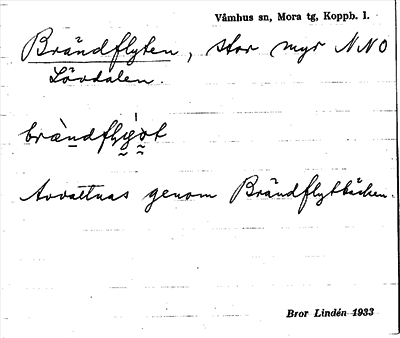 Våmhus sn, Mora tg, Koppb. l.
Brändflyten, stor myr NNO
Lövdalen.
bràndflyo̰t
Avvattnas genom Brändflytbäcken.
Bror Lindén 1933